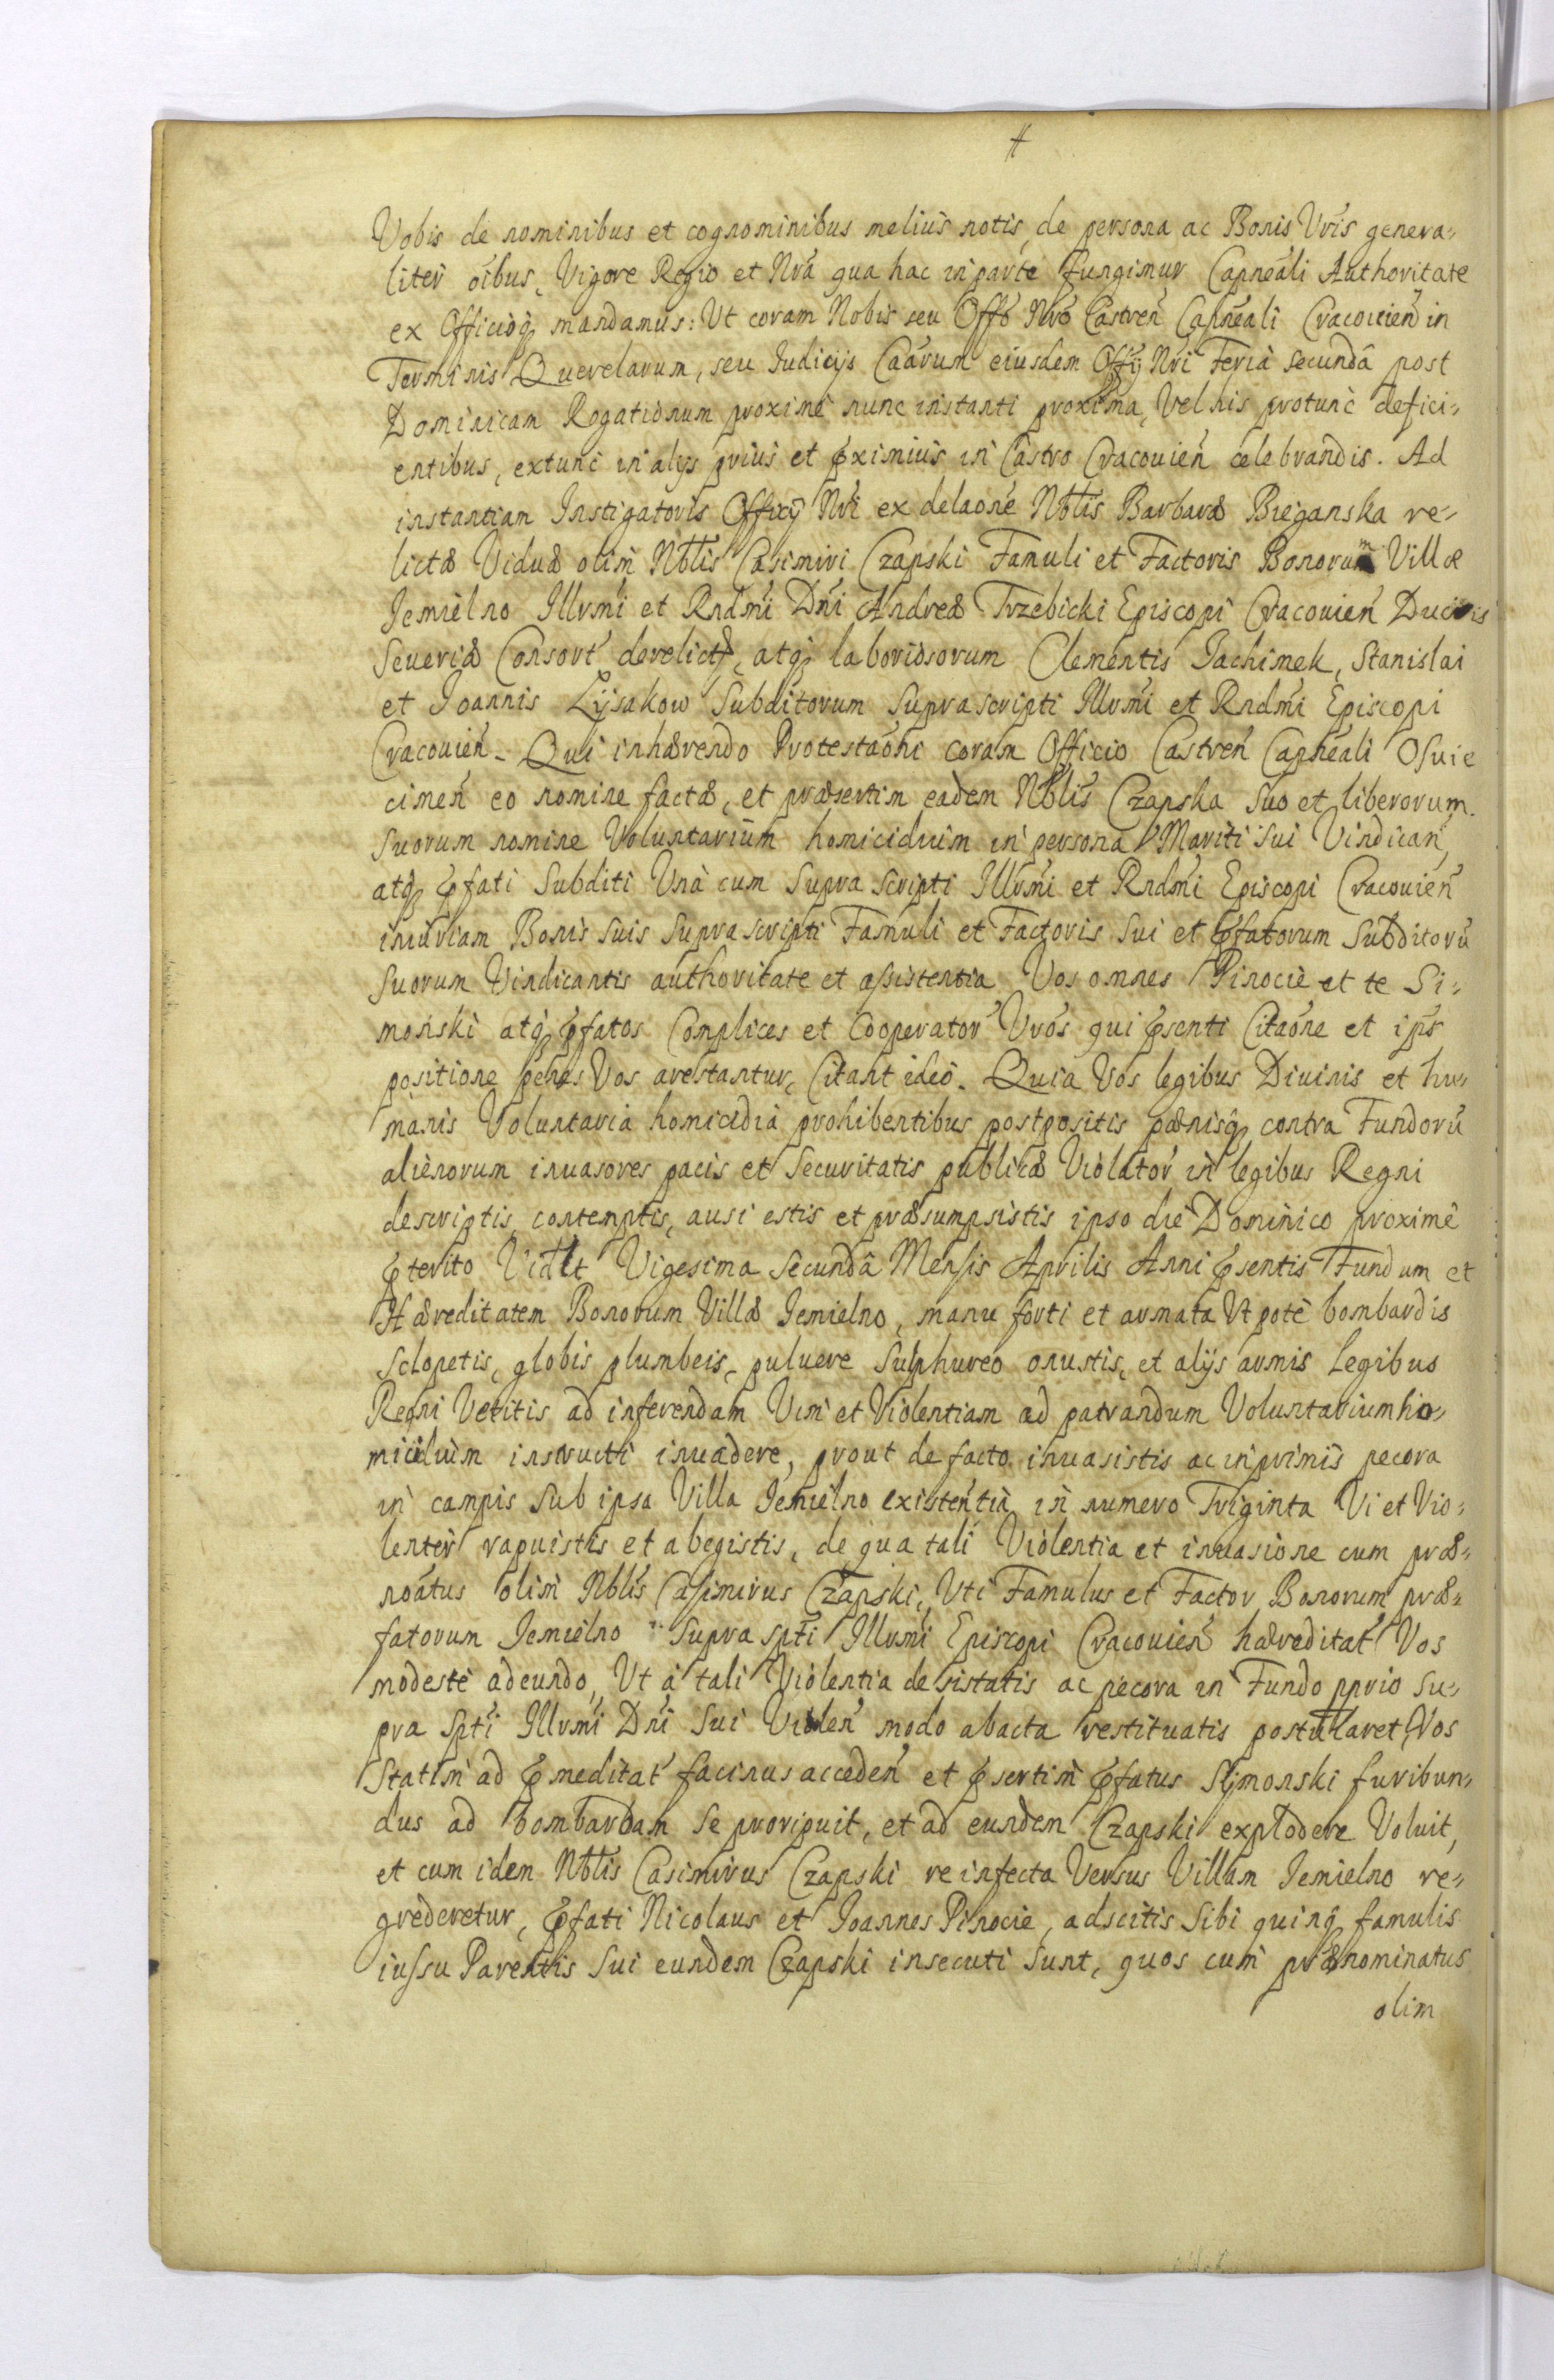 #
Vobis de nominibus et cognominibus melius notis, de persona ac Bonis Vris genera-
liter oibus, Vigore Regio et Nra qua hac in parte fungimur Capneali Authoritate
ex Officioq mandamus: Ut coram Nobis seu Offo Nro Castren Capneali Cracouien in
Terminis Querelarum, seu Iudicijs Caarum eiusdem Offij Nri Feria secundâ post
Dominicam Rogationum proximè nunc instanti proxima, Vel his protunc defici-
entibus, extunc in alijs prius et pximius in Castro Cracouien celebrandis. Ad
instantiam Instigatoris Officij Nri ex delaone Nblis Barbaræ Bieganska re-
lictæ Viduæ olim Nblis Casimiri Czapski Famuli et Factoris Bonorum Villæ
Jemielno Illvsmi et Rndmi Dni Andreæ Trzebicki Episcopi Cracouien Ducis
Seueriæ Consort derelictæ, atq laboriosorum Clementis Jachimek, Stanislai
et Joannis Lysakow Subditorum Suprascripti Illvmi et Rndmi Episcopi
Cracouien. Qui inhærendo Protestaoni coram Officio Castren Capneali Osuie
cimen eo nomine factæ, et præsertim eadem Nblis Czapska Suo et liberorum
Suorum nomine Voluntarium homicidium in persona Mariti Sui Vindican,
atq pfati Subditi Unà cum Supra scripti Illvmi et Rndmi Episcopi Cracouien
iniuriam Bonis Suis Supra scripti Famuli et Factoris Sui et pfatorum Subditorũ
Suorum Vindicantis authoritate et assistentia Vos omnes Pinocie et te Si-
monski atq pfatos Complices et Cooperator Vros qui psenti Citaone et ips
positione penes Vos arestantur, Citant ideò. Quia Vos legibus Diuinis et hu-
manis Voluntaria homicidia prohibentibus postpositis pænisq contra Fundorũ
alienorum inuasores pacis et Securitatis publicæ Violator in legibus Regni
descriptis, contemptis, ausi estis et præsumpsistis ipso die Dominico proximè
pterito Vidlt Vigesima Secundâ Mensis Aprilis Anni psentis Fundum et
Hæreditatem Bonorum Villæ Jemielno, manu forti et armata Ut potè bombardis
Sclopetis, globis plumbeis, puluere Sulphureo onustis, et alijs armis Legibus
Regni Vetitis ad inferendam Vim et Violentiam ad patrandum Voluntarium ho-
micidium instructi inuadere, prout de facto inuasistis ac inprimis pecora
in campis Sub ipsa Villa Jemielno existentia in numero Triginta Vi et Vio-
lenter rapuistis et abegistis, de qua tali Violentia et inuasione cum præ-
noatus olim Nblis Casimirus Czapski, Uti Famulus et Factor Bonorum præ-
fatorum Jemielno Supra spti Illvmi Episcopi Cracouien hæreditat Vos
modestè adeundo, Ut à tali Violentia desistatis ac pecora in Fundo pprio Su-
pra Spti Illvmi Dni Sui Violen modo abacta restituatis postularet, Vos
Statim ad pmeditat facinus acceden et psertim pfatus Symonski furibun-
dus ad bombardam Se proripuit, et ad eundem Czapski explodere Voluit,
et cum idem Nblis Casimirus Czapski re infecta Versus Villam Jemielno re-
grederetur, pfati Nicolaus et Joannes Pinocie, adscitis Sibi quinq famulis
iussu Parentis Sui eundem Czapski insecuti Sunt, quos cum prænominatus
olim